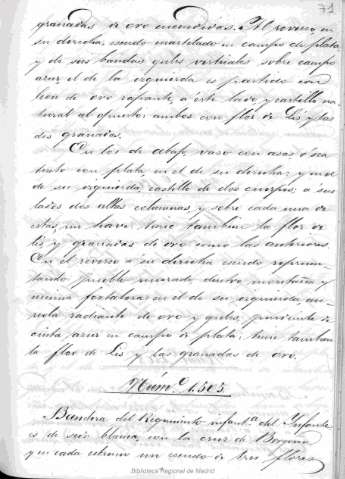 71
granadas de oro encendidas. Al reverso, en
su derecha, escudo cuartelado en campo de plata
y de sus bandas gules verticales sobre campo
azul el de la izquierda es partido con
leon de oro rapante, a este lado y castillo na-
tural al opuesto; ambos con flor de Lis y las
dos granadas.
En los de abajo, vaso con asas
con plata, en el de su derecha; y en el
de su izquierda, castillo de dos cuerpos, a sus
lados dos altas columnas, y sobre cada una de
estas, un tiene tambien la flor de
lis y granadas de oro como las anteriores.
En el reverso a su derecha escudo represen-
tando pueblo murado, dentro montañas y
una fortaleza; en el de su izquierda,
radiante de oro y pendiente de
cinta azul en campo de plata; tiene tambien
la flor de Lis y las granadas de oro.
Núm.º 1.505.
Bandera del Regimiento infant.ª del Infante
es de seda blanca, con la cruz de Borgoña
y en cada estremo un escudo de tres flores
Biblioteca Regional de Madrid